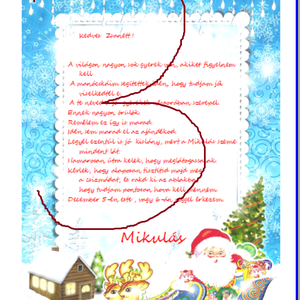 Kedves Zsanett!
A világon nagyon sok gyerek van, akiket figyelnem
kell.
A manócskáim segítettek ebben, hogy tudjam jó
viselkedtél e.
A te neved a jó gyerekek csoportban szerepel.
Ennek nagyon örülök.
Remélem ez így is marad.
Idén sem marad el az ajándékod.
Legyél ezentúl is jó kislány, mert a Mikulás szeme
mindent lát.
Hamarosan útra kelek, hogy meglátogassalak.
Kérlek, hogy alaposan tisztítsd majd meg
a csizmádat, és rakd ki az ablakba,
hogy tudjam pontosan, hova kell mennem.
December 5-én, este, vagy 6-án, reggel érkezem.
Mikulás